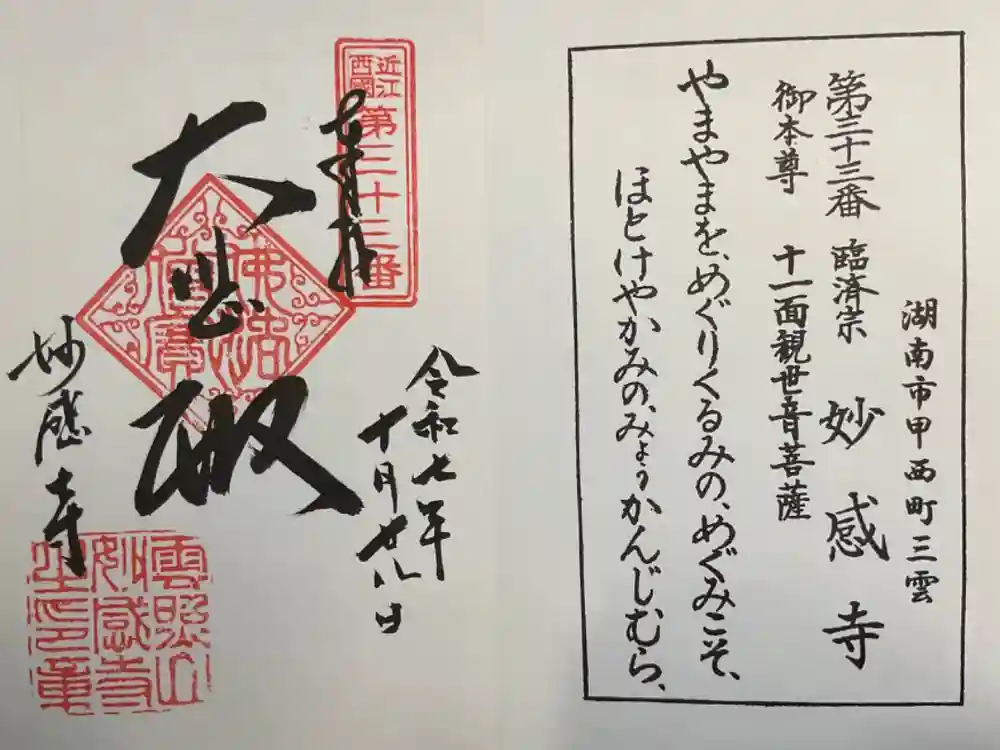 湖南市甲西町三雲
第三十三番 臨済宗 妙感寺
御本尊 十一面観世音菩薩
やまやまを、めぐりくるみの、めぐみこそ、
ほとけやかみの、みょうかんじむら、
近江
西國
第三十三番
奉拝
令和七年
十月廿八日
大悲殿
佛法僧寳
妙感寺
雲照山
妙感寺
之印章